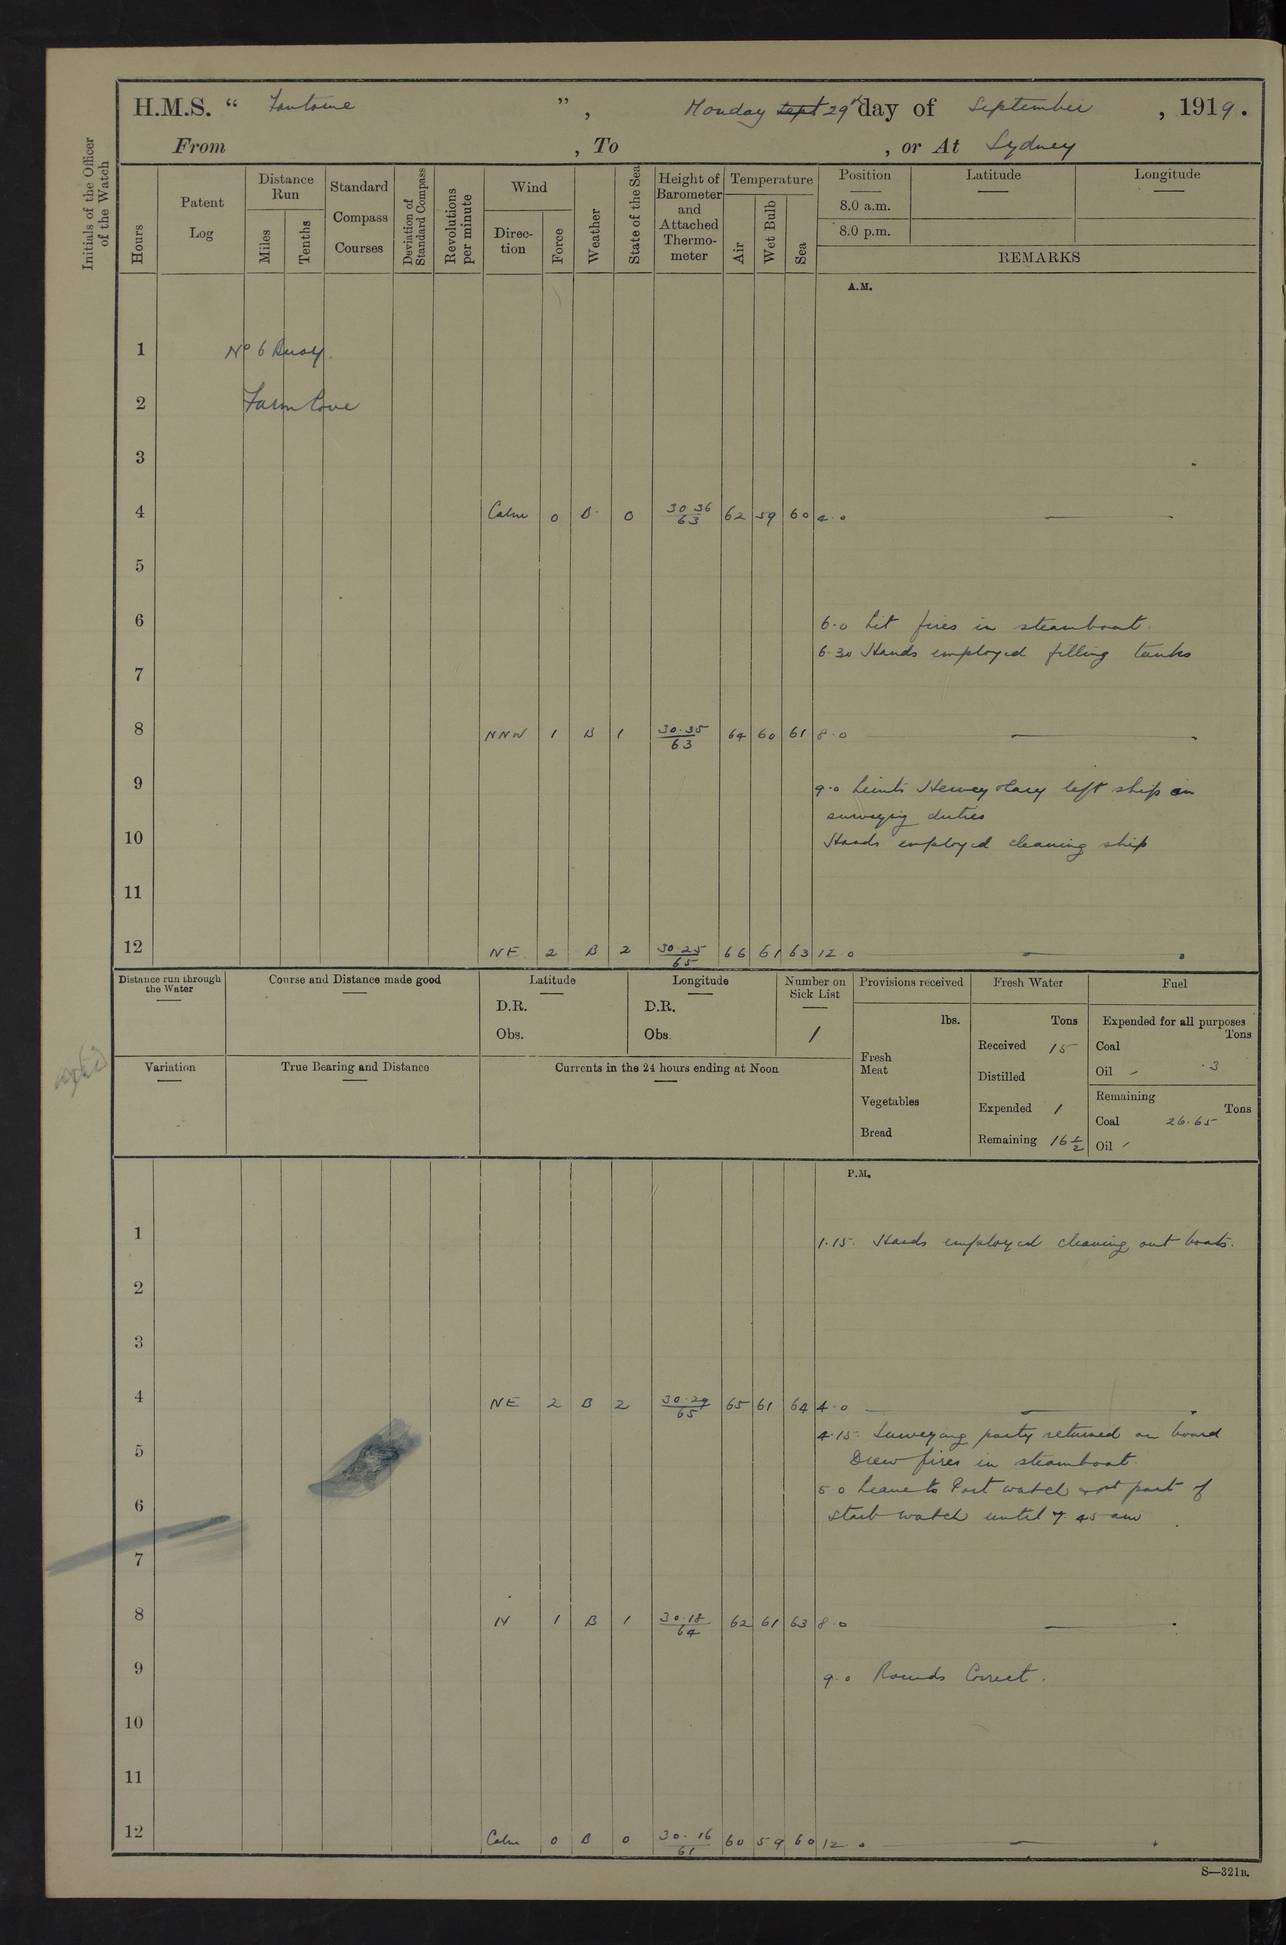 H.M.S. “ Fantome ” , Monday Sept 29th day of September , 1919.
From , To , or At Sydney
Initials of the Officer of the Watch
Hours
Patent Log
Distance Run
Miles
Tenths
Standard Compass Courses
Deviation of Standard Compass
Revolutions per minute
Wind
Direction
Force
Weather
State of the Sea
Height of Barometer and Attached Thermometer
Temperature
Air
Wet Bulb
Sea
Position
8.0 a.m.
8.0 p.m.
Latitude
Longitude
REMARKS
A.M.
1 No 6 Buoy.
2 Farm Cove
3
4 Calm 0 B 0 30.36/63 62 59 60 4.0
5
6 6.0 Lit fires in steamboat.
6.30 Hands employed filling tanks
7
8 NNW 1 B 1 30.35/63 64 60 61 8.0
9 9.0 Lieuts Hervey left ship on
surveying duties
10 Hands employed cleaning ship
11
12 NE 2 B 2 30.25/65 66 61 63 12.0
Distance run through the Water
Course and Distance made good
Latitude
D.R.
Obs.
Longitude
D.R.
Obs.
Number on Sick List
1
Variation
True Bearing and Distance
Currents in the 24 hours ending at Noon
Provisions received
lbs.
Fresh Meat
Vegetables
Bread
Fresh Water
Tons
Received 15
Distilled
Expended 1
Remaining 16 1/2
Fuel
Expended for all purposes
Tons
Coal
Oil .3
Remaining
Tons
Coal 26.65
Oil
P.M.
1 1.15. Hands employed cleaning out boats.
2
3
4 NE 2 B 2 30.29/65 65 61 64 4.0
4.15. Surveying party returned on board
5 Drew fires in steamboat.
5.0 Leave to Port watch & pt part of
6 Starb watch until 7.45 am
7
8 N 1 B 1 30.18/64 62 61 63 8.0
9 9.0 Rounds Correct.
10
11
12 Calm 0 B 0 30.16/61 60 59 60 12.0
S—321B.